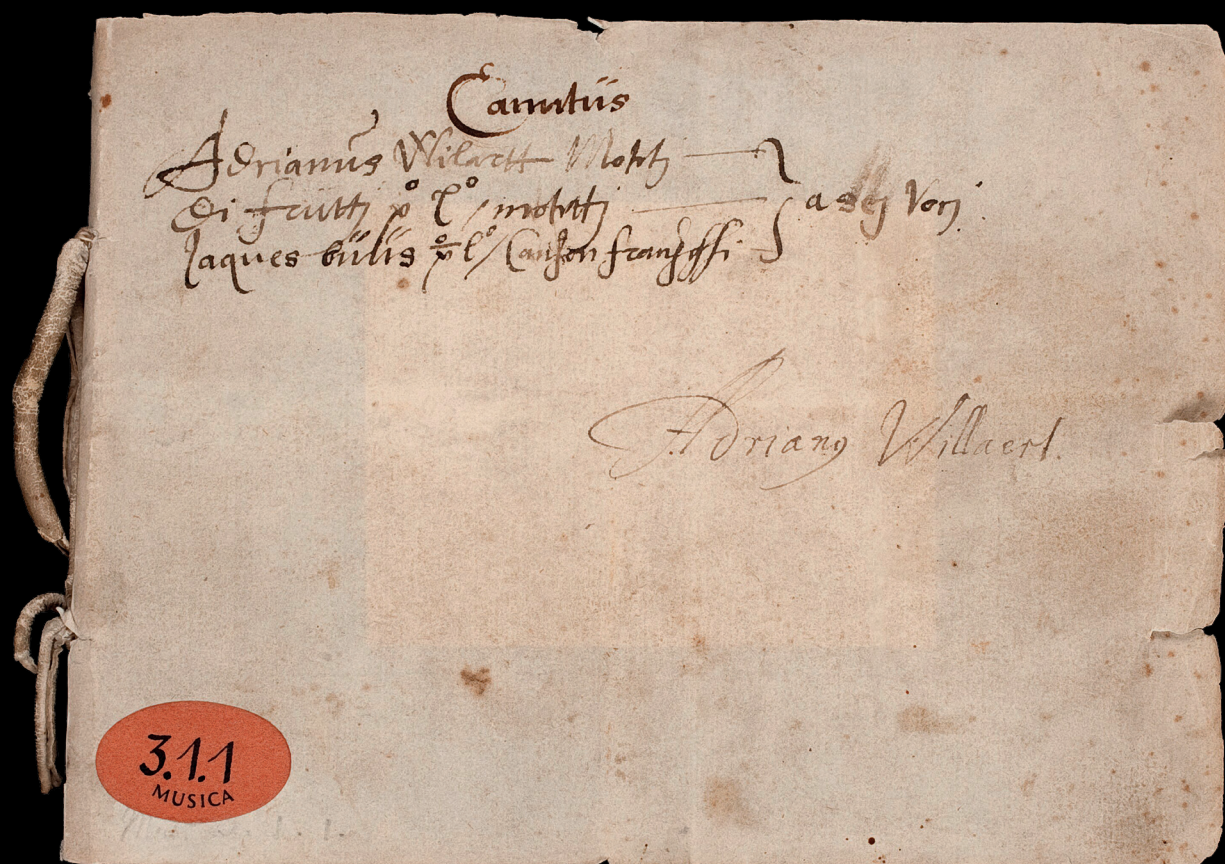 Canntus
Adrianus Wilartt Motetj
Di fruttj p° l° / motettj
Jaques büüs p° l° / Canzon franzesi
a 5 Vocj.
Adrianus Willaert.
3.1.1
MUSICA